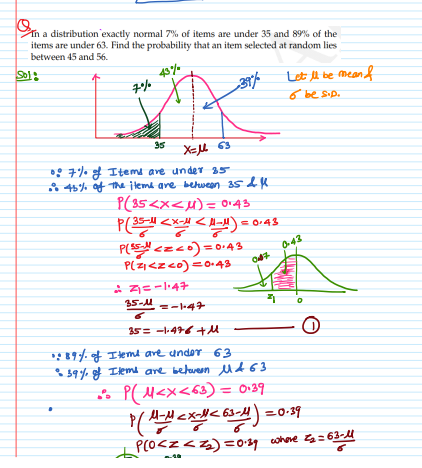 Q
In a distribution exactly normal 7% of items are under 35 and 89% of the
items are under 63. Find the probability that an item selected at random lies
between 45 and 56.
Sol:
7% 43% 39%
Let μ be mean &
σ be S.D.
35 X=μ 63
∵ 7% of Items are under 35
∴ 43% of the items are between 35 & μ
P(35<x<μ) = 0.43
P(35-μ/σ < x-μ/σ < μ-μ/σ) = 0.43
P(35-μ/σ < z < 0) = 0.43
P(z₁<z<0) = 0.43
0.07 0.43
z₁ 0
∴ z₁ = -1.47
35-μ/σ = -1.47
35 = -1.47σ + μ ——— ①
∵ 89% of Items are under 63
∴ 39% of Items are between μ & 63
∴ P(μ<x<63) = 0.39
P(μ-μ/σ < x-μ/σ < 63-μ/σ) = 0.39
P(0<z<z₂) = 0.39 where z₂ = 63-μ/σ
0.39